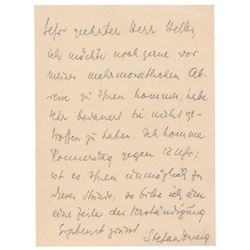 Sehr geehrter Herr Heller
ich möchte noch gerne vor
meiner mehrmonatlichen Ab-
reise zu Ihnen kommen, habe
sehr bedauert Sie nicht ge-
troffen zu haben. Ich komme
Donnerstag gegen 12 Uhr:
ist es Ihnen unmöglich zu
dieser Stunde, so bitte ich um
eine Zeile der Verständigung
Ergebenst grüsst
Stefan Zweig